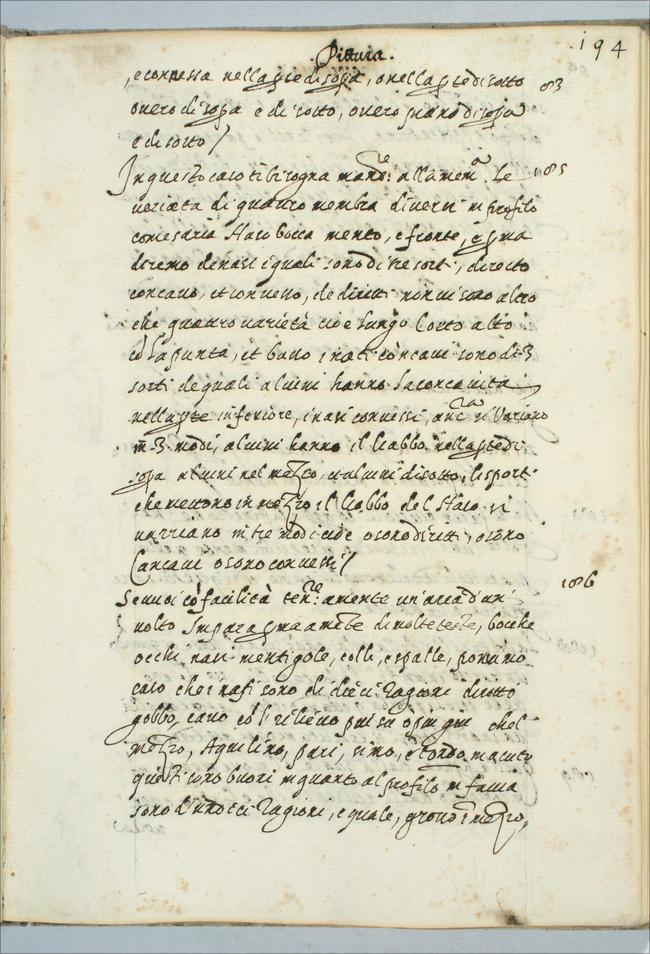 Pittura.
194
, e connessa nella pte di sopa, o nella pte di sotto 83
overo di sopa e di sotto, overo piano di sopa
e di sotto /
In questo caso ti bisogna mandre: alla mema le 185
varieta di quatro membra diversi in profilo
come saria Naso bocca mento, e fronte, e pma
diremo de nasi i quali sono di tre sorti, diretto
concavo, et convesso, de diritti non vi sono altro
che quatro varietà cioè lungo Corto alto
cō la punta, et basso, i nasi concavi sono di 3
sorti de quali alcuni hanno la concavità
nella pte inferiore, i nasi convessi, anc si Variano
in 3 modi, alcuni hanno il Gabbo nella pte di
sopa alcuni nel mezzo, et alcuni di sotto, li sporti
che mettono in mezzo il Gobbo del Naso si
varriano in tre modi cioè o sono diritti, o sono
Concavi o sono convessi /
Se vuoi cō facilità tenre: a mente un'aria d'un 186
volto Impara pma a mete di molte teste, bocche
occhi nasi menti gole, colli, e spalle, poniamo
caso che i nasi sono di dieci ragioni diritto
gobbo, cavo co'l rilievo piu su o piu giu che'l
mezzo, Aquilino, pari, simo, e tondo, et acuto
questi sono buoni in quanto al profilo in faccia
sono d'undeci ragioni, equale, grosso i mezzo,